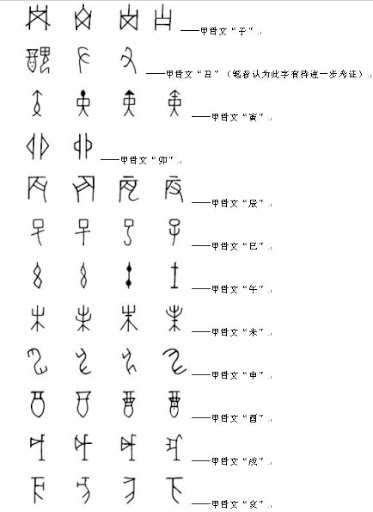 ——甲骨文“子”
——甲骨文“丑”（笔者认为此字有待进一步考证）
——甲骨文“寅”
——甲骨文“卯”
——甲骨文“辰”
——甲骨文“巳”
——甲骨文“午”
——甲骨文“未”
——甲骨文“申”
——甲骨文“酉”
——甲骨文“戌”
——甲骨文“亥”